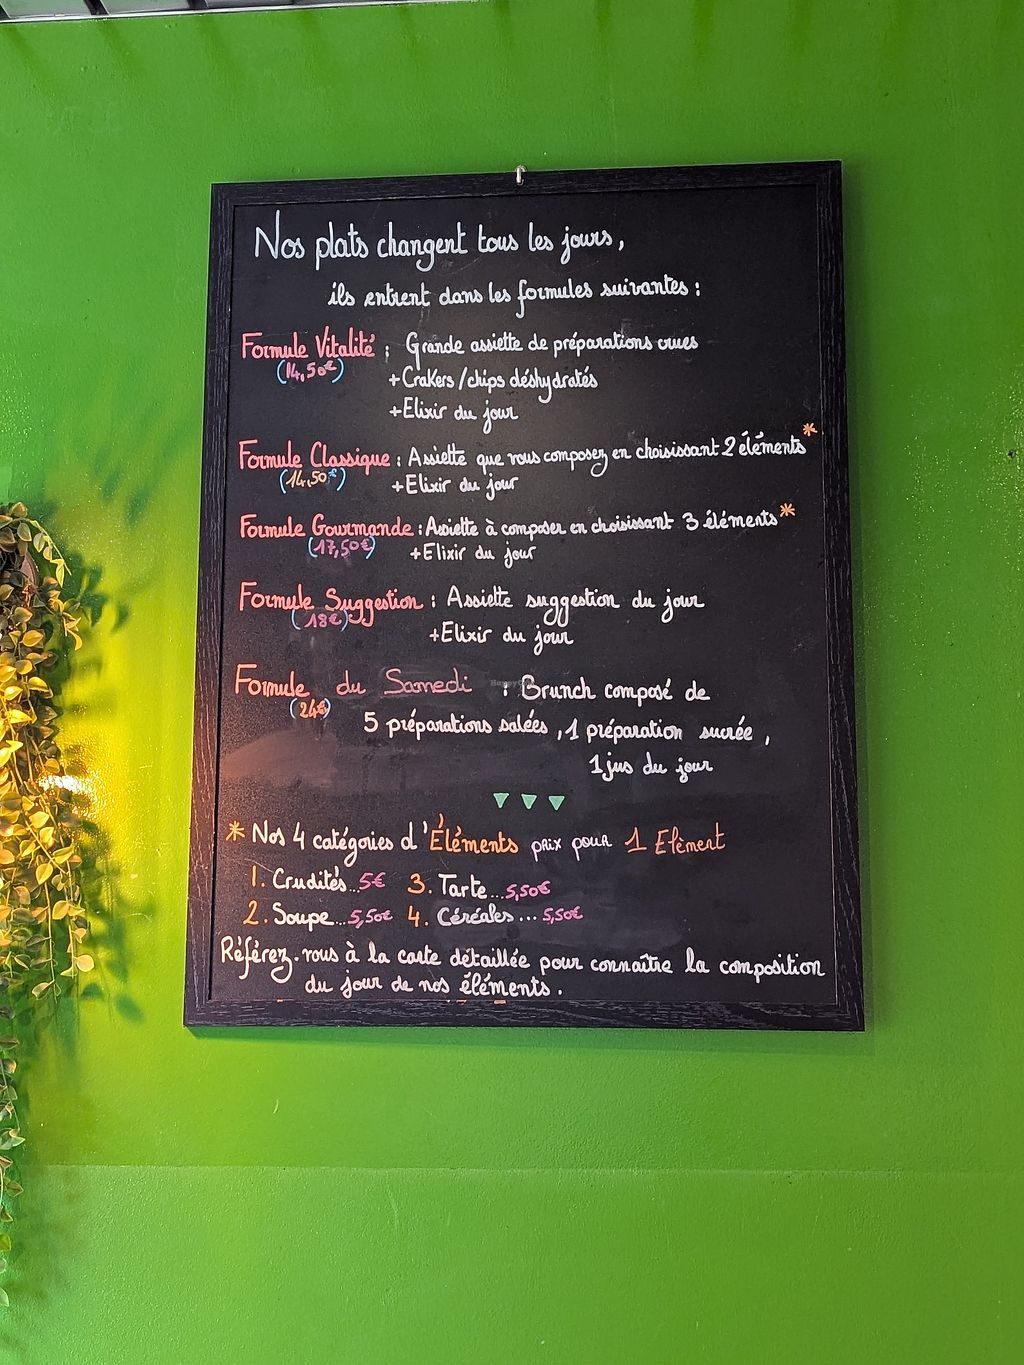 Nos plats changent tous les jours,
ils entrent dans les formules suivantes :
Formule Vitalité : Grande assiette de préparations crues
(14,50€)
+Crakers/chips déshydratés
+Elixir du jour
Formule Classique : Assiette que vous composez en choisissant 2 éléments*
(14,50€)
+Elixir du jour
Formule Gourmande : Assiette à composer en choisissant 3 éléments*
(17,50€)
+Elixir du jour
Formule Suggestion : Assiette suggestion du jour
(18€)
+Elixir du jour
Formule du Samedi : Brunch composé de
(24€)
5 préparations salées, 1 préparation sucrée,
1 jus du jour
* Nos 4 catégories d'Éléments prix pour 1 Elément
1. Crudités...5€ 3. Tarte...5,50€
2. Soupe...5,50€ 4. Céréales...5,50€
Référez-vous à la carte détaillée pour connaître la composition
du jour de nos éléments.